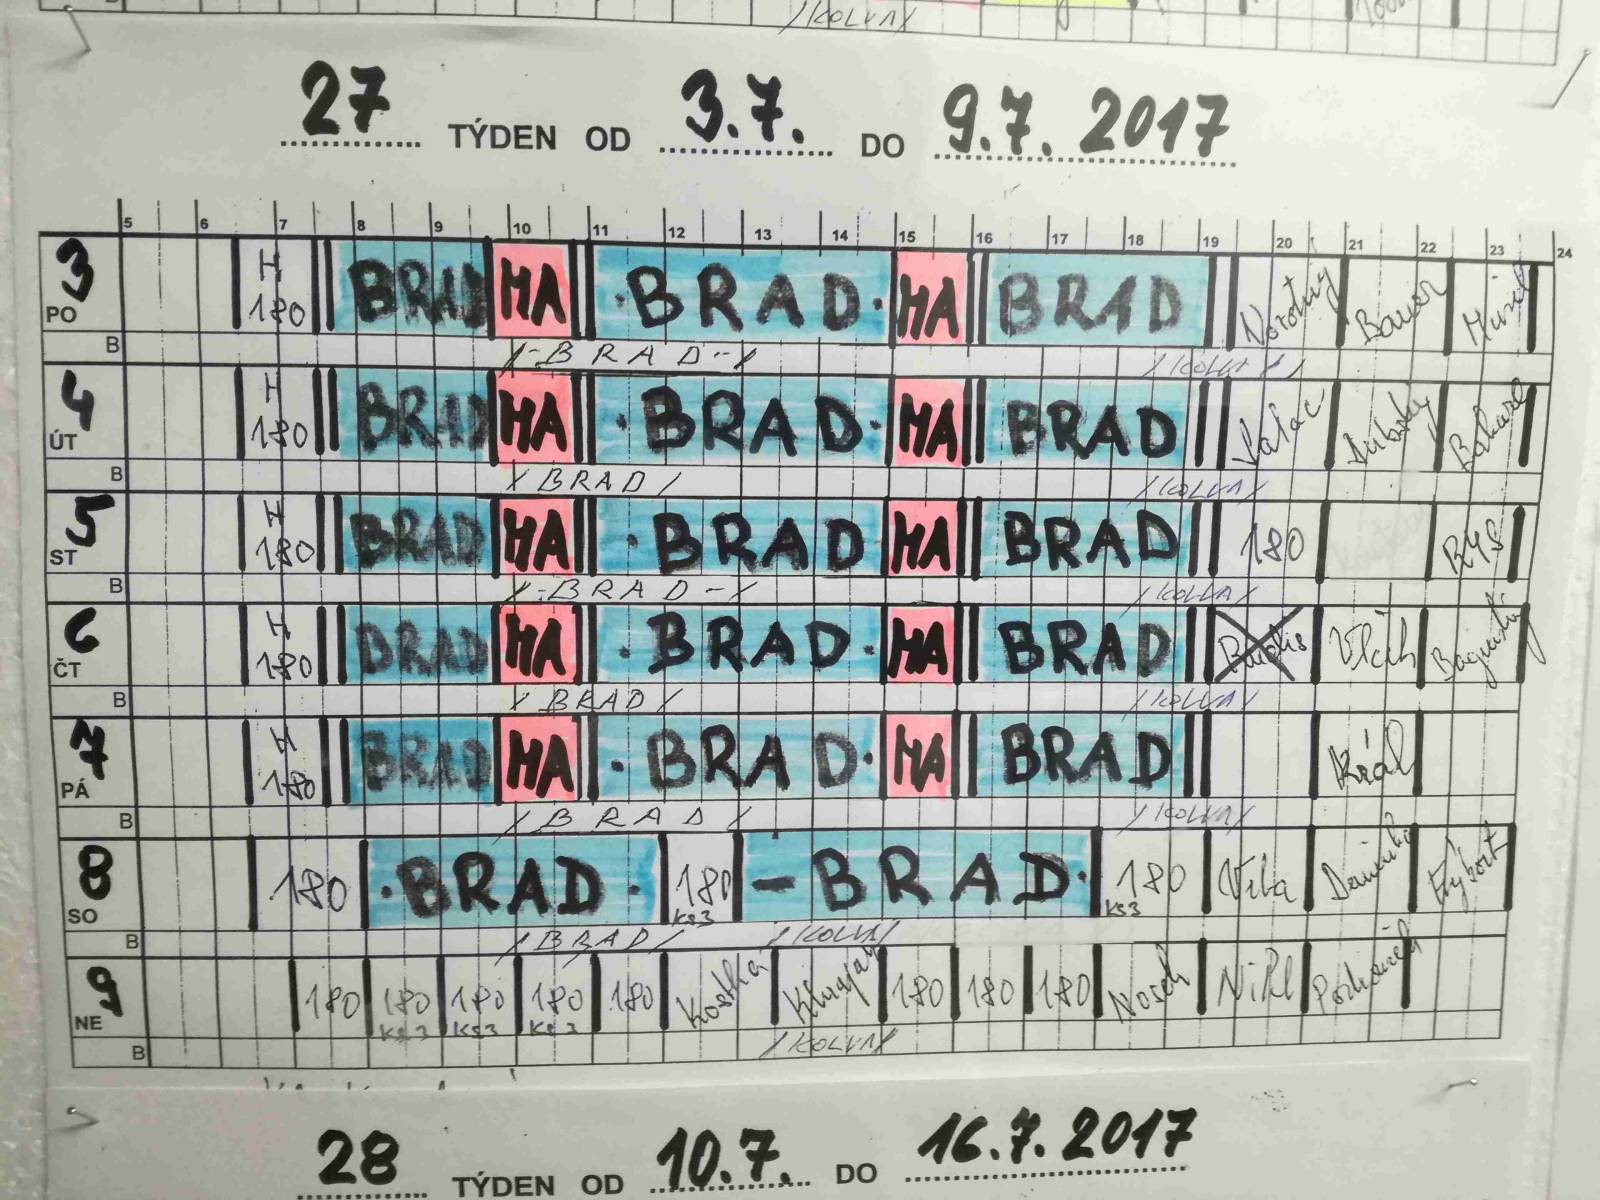 /KOLVA/
27 TÝDEN OD 3.7. DO 9.7. 2017
5 6 7 8 9 10 11 12 13 14 15 16 17 18 19 20 21 22 23 24
3 PO H 180 BRAD HA ·BRAD· HA BRAD Novotný Bauer
B /-BRAD-/ /KOLVA/
4 ÚT H 180 BRAD HA ·BRAD· HA BRAD
B /BRAD/ /KOLVA/
5 ST H 180 BRAD HA ·BRAD HA BRAD 180 RYS
B /-BRAD-/ /KOLVA/
6 ČT H 180 BRAD HA ·BRAD· HA BRAD Vlach
B /BRAD/ /KOLVA/
7 PÁ H 180 BRAD HA ·BRAD· HA BRAD Král
B /BRAD/ /KOLVA/
8 SO 180 ·BRAD· 180 KS3 -BRAD· 180 KS3 Vrba Výbort
B /BRAD/ /KOLVA/
9 NE 180 180 KS3 180 KS3 180 KS3 180 180 180 180 Nosek Nikl
B /KOLVA/
28 TÝDEN OD 10.7. DO 16.7.2017